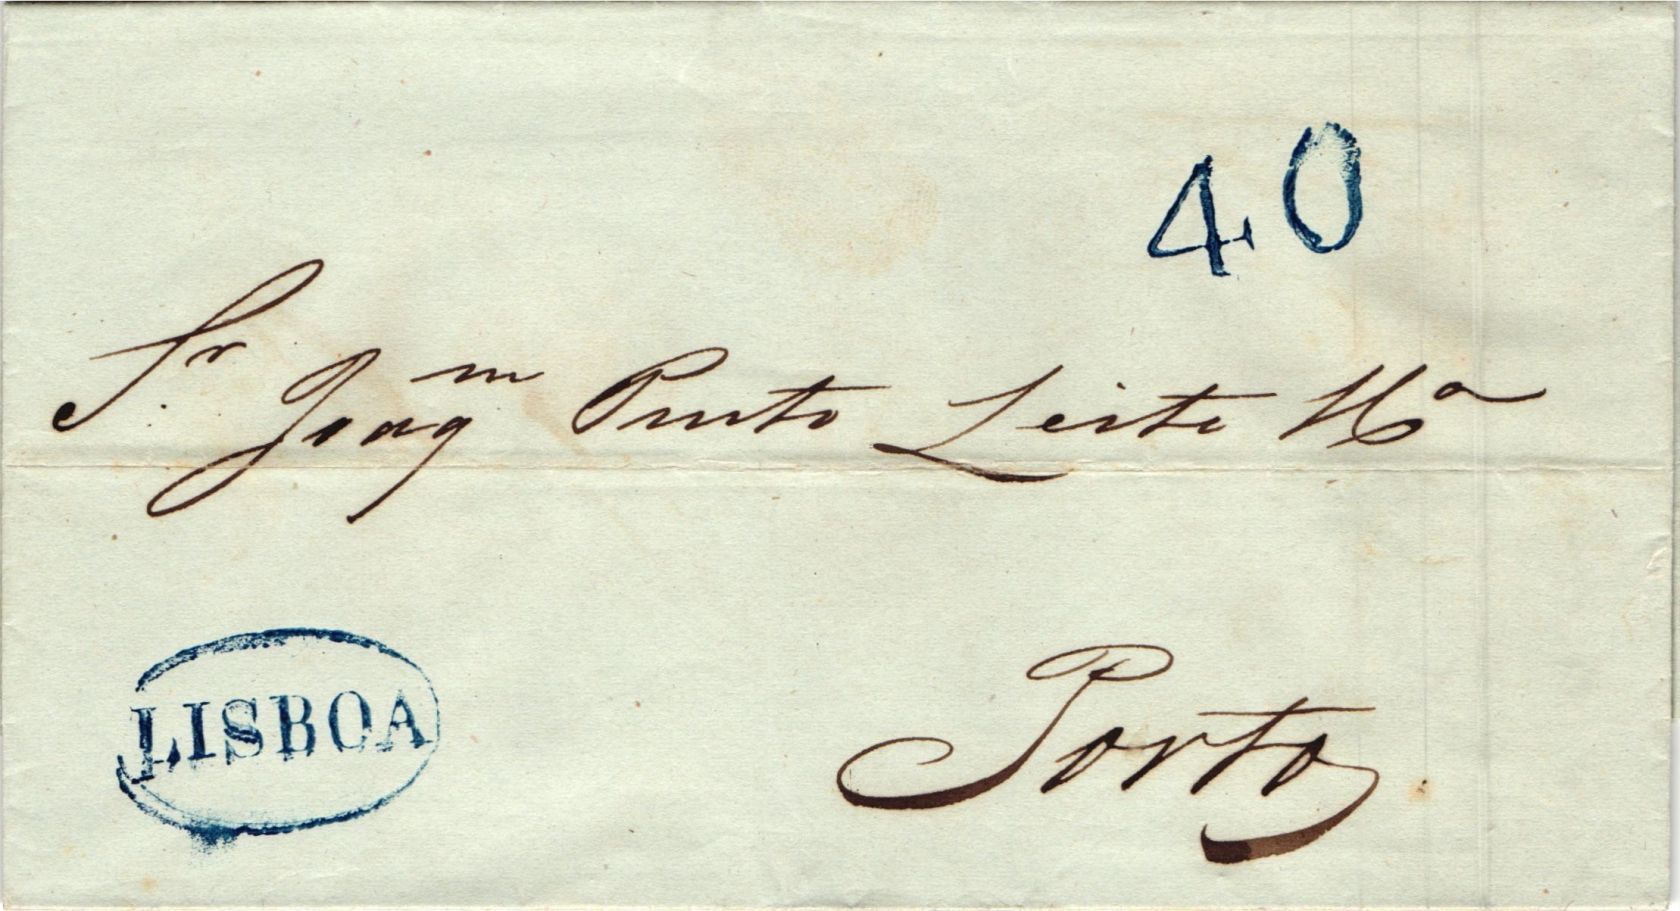 40
Sr. Joaqm Pinto Leite
Porto
LISBOA